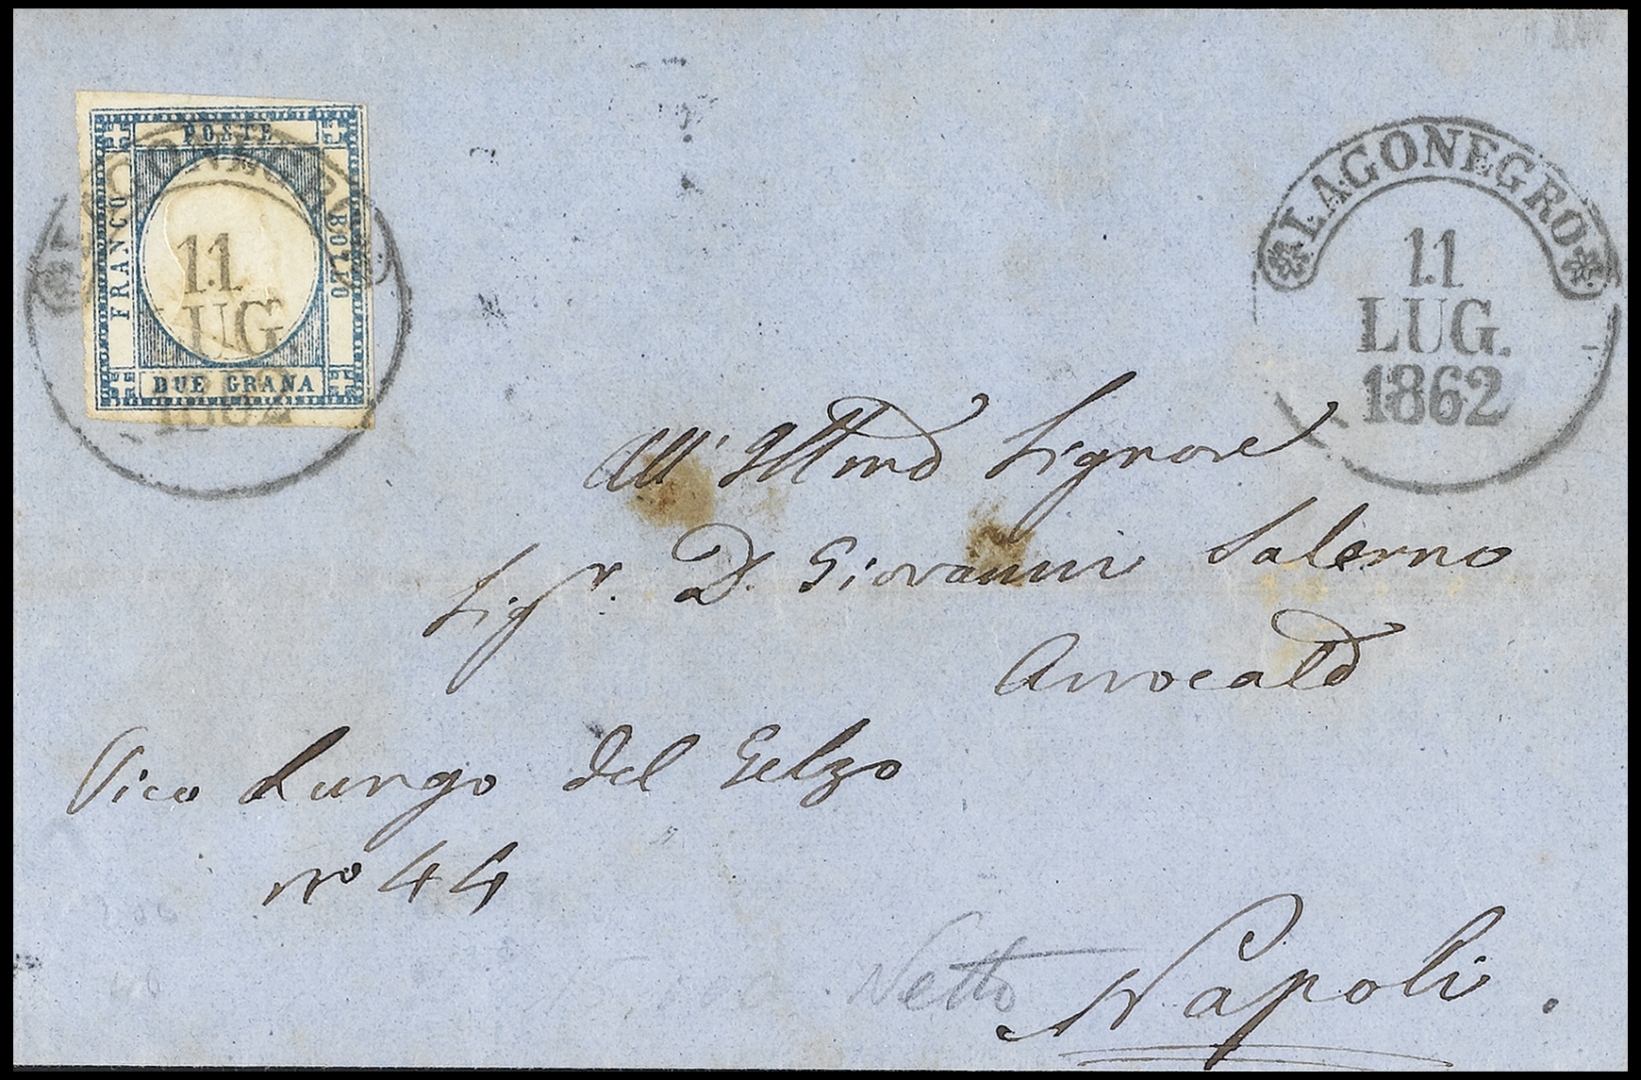 POSTE
FRANCO
BOLLO
DUE GRANA
11
LUG.
1862
LAGONEGRO
11
LUG.
1862
All' Illmo Signore
Sigr. D. Giovanni Salerno
Avvocato
Vico Lungo del Gelzo
no 44
Netto
Napoli.